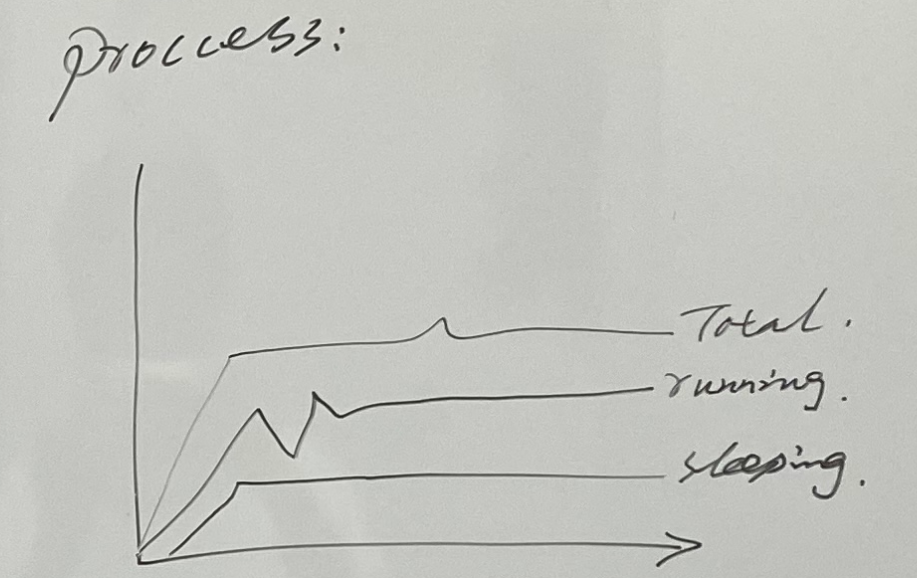 proccess:
Total.
running.
sleeping.